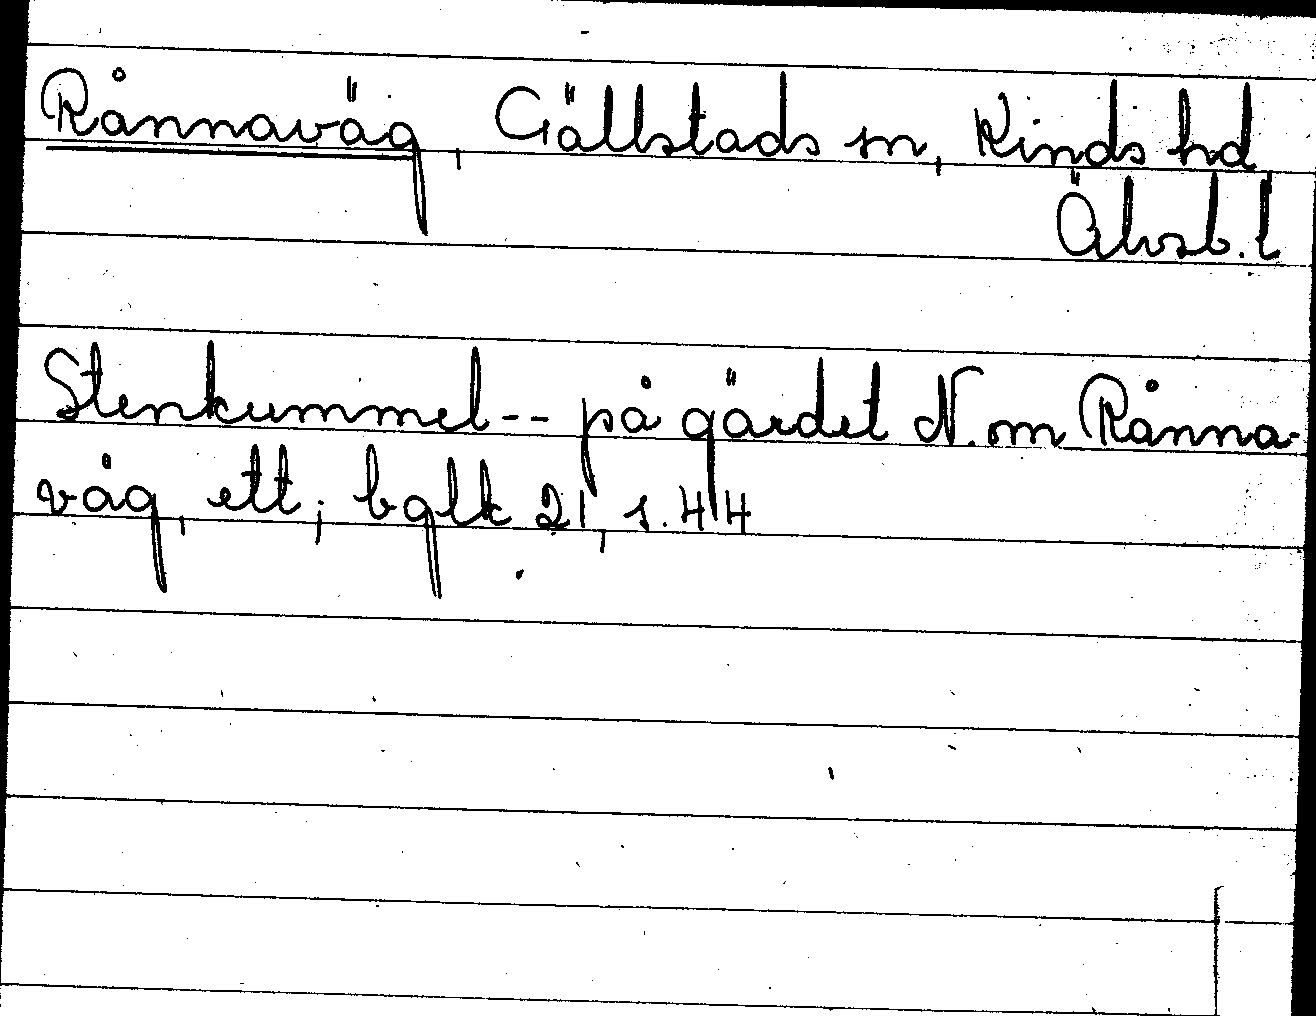 Rånnaväg, Gällstads sn, Kinds hd
Älvsb. l
Stenkummel -- på gärdet N. om Rånna-
våg, ett; bglk 21, s. 44